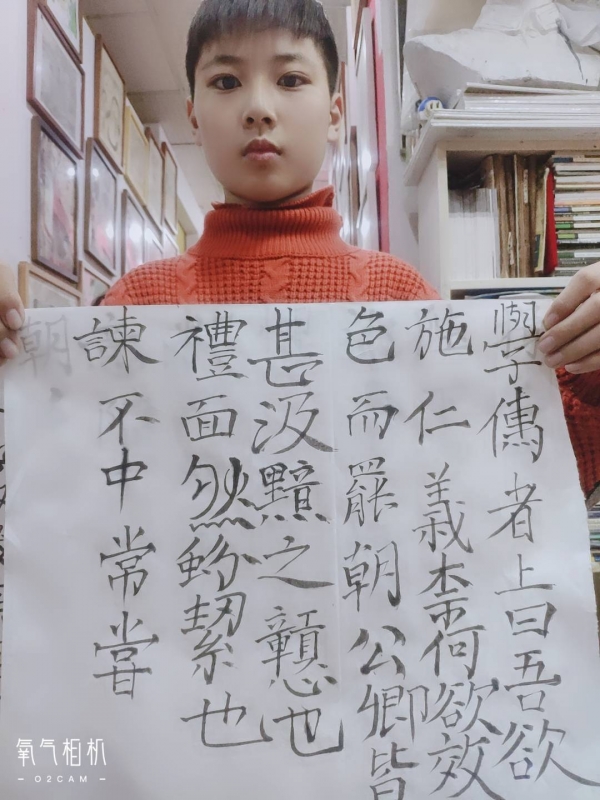 學者上曰吾欲
施仁義柰何欲效
色而罷朝公卿皆
甚汲黯之戇也
禮面然絜也
諫不中常嘗
朝
氧气相机
- O2CAM -